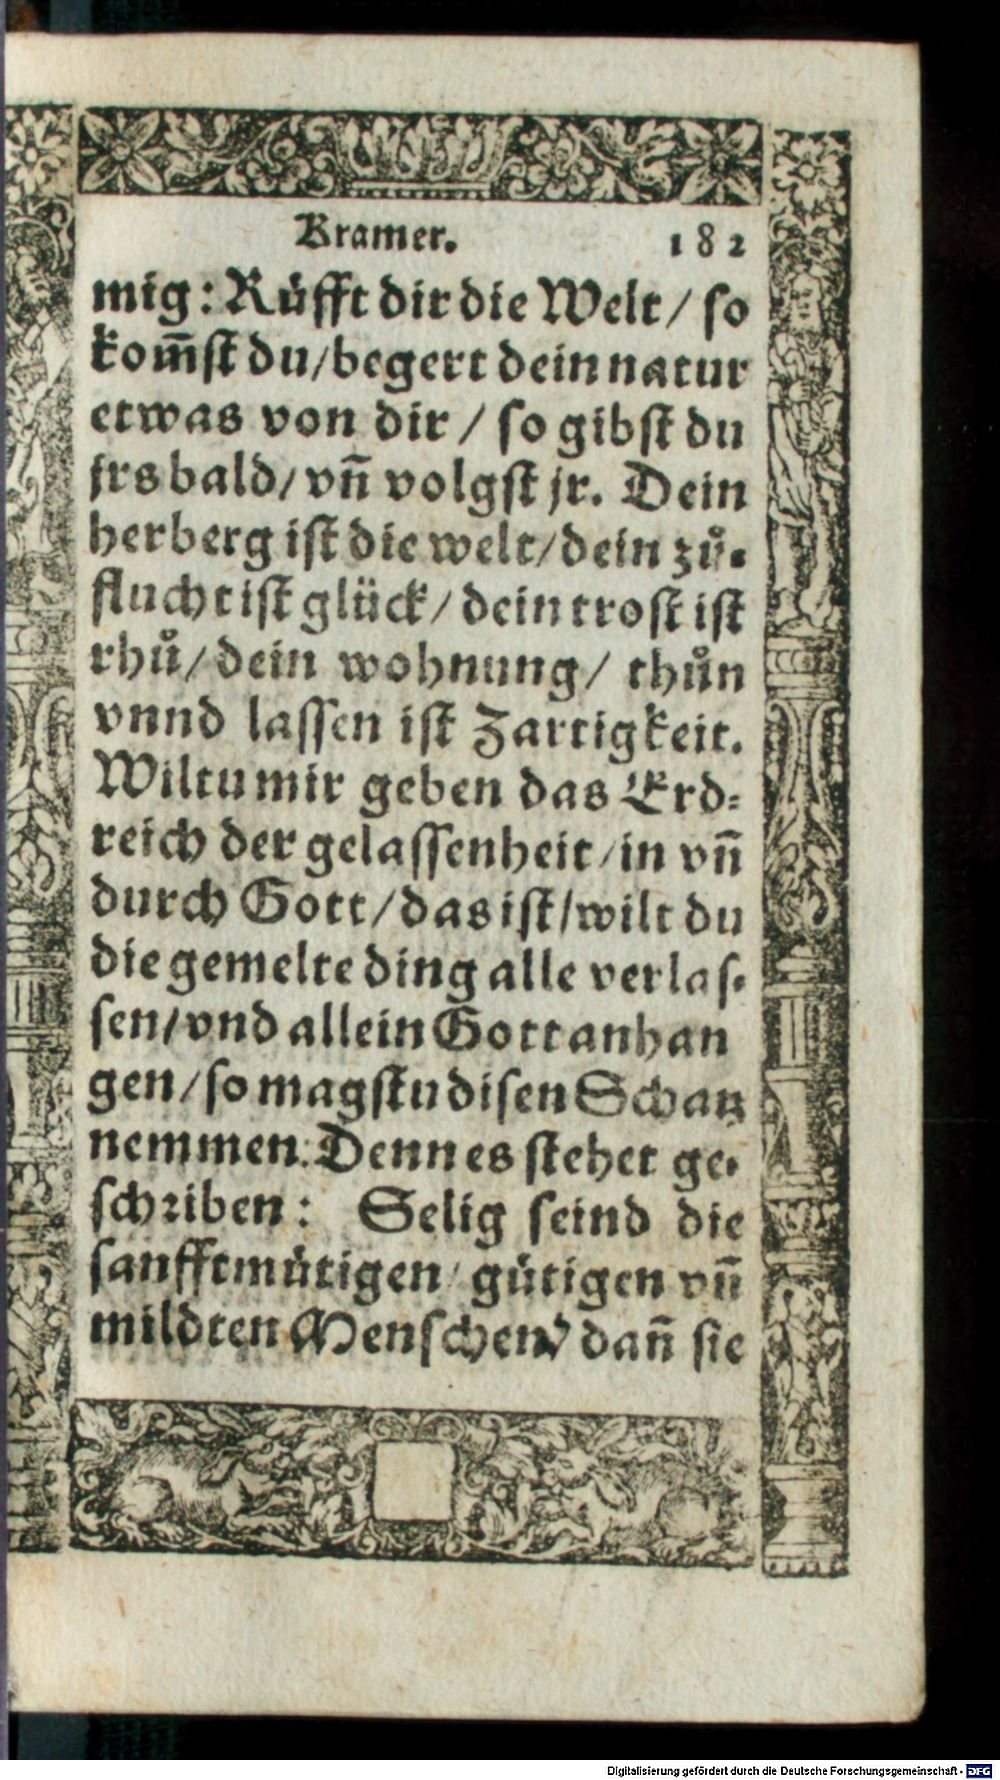 Kramer. 182
mig: Rüfft dir die Welt / so
kom̃st du / begert dein natur
etwas von dir / so gibst du
jrs bald / vn̄ volgst jr. Dein
herberg ist die welt / dein zů-
flucht ist glück / dein trost ist
rhů / dein wohnung / thůn
vnnd lassen ist Zartigkeit.
Wiltu mir geben das Erd-
reich der gelassenheit / in vn̄
durch Gott / das ist / wilt du
die gemelte ding alle verlas-
sen / vnd allein Gott anhan
gen / so magstu disen Schatz
nemmen: Denn es stehet ge-
schriben: Selig seind die
sanfftmütigen / gütigen vn̄
mildten Menschen / dan̄ sie
Digitalisierung gefördert durch die Deutsche Forschungsgemeinschaft - DFG